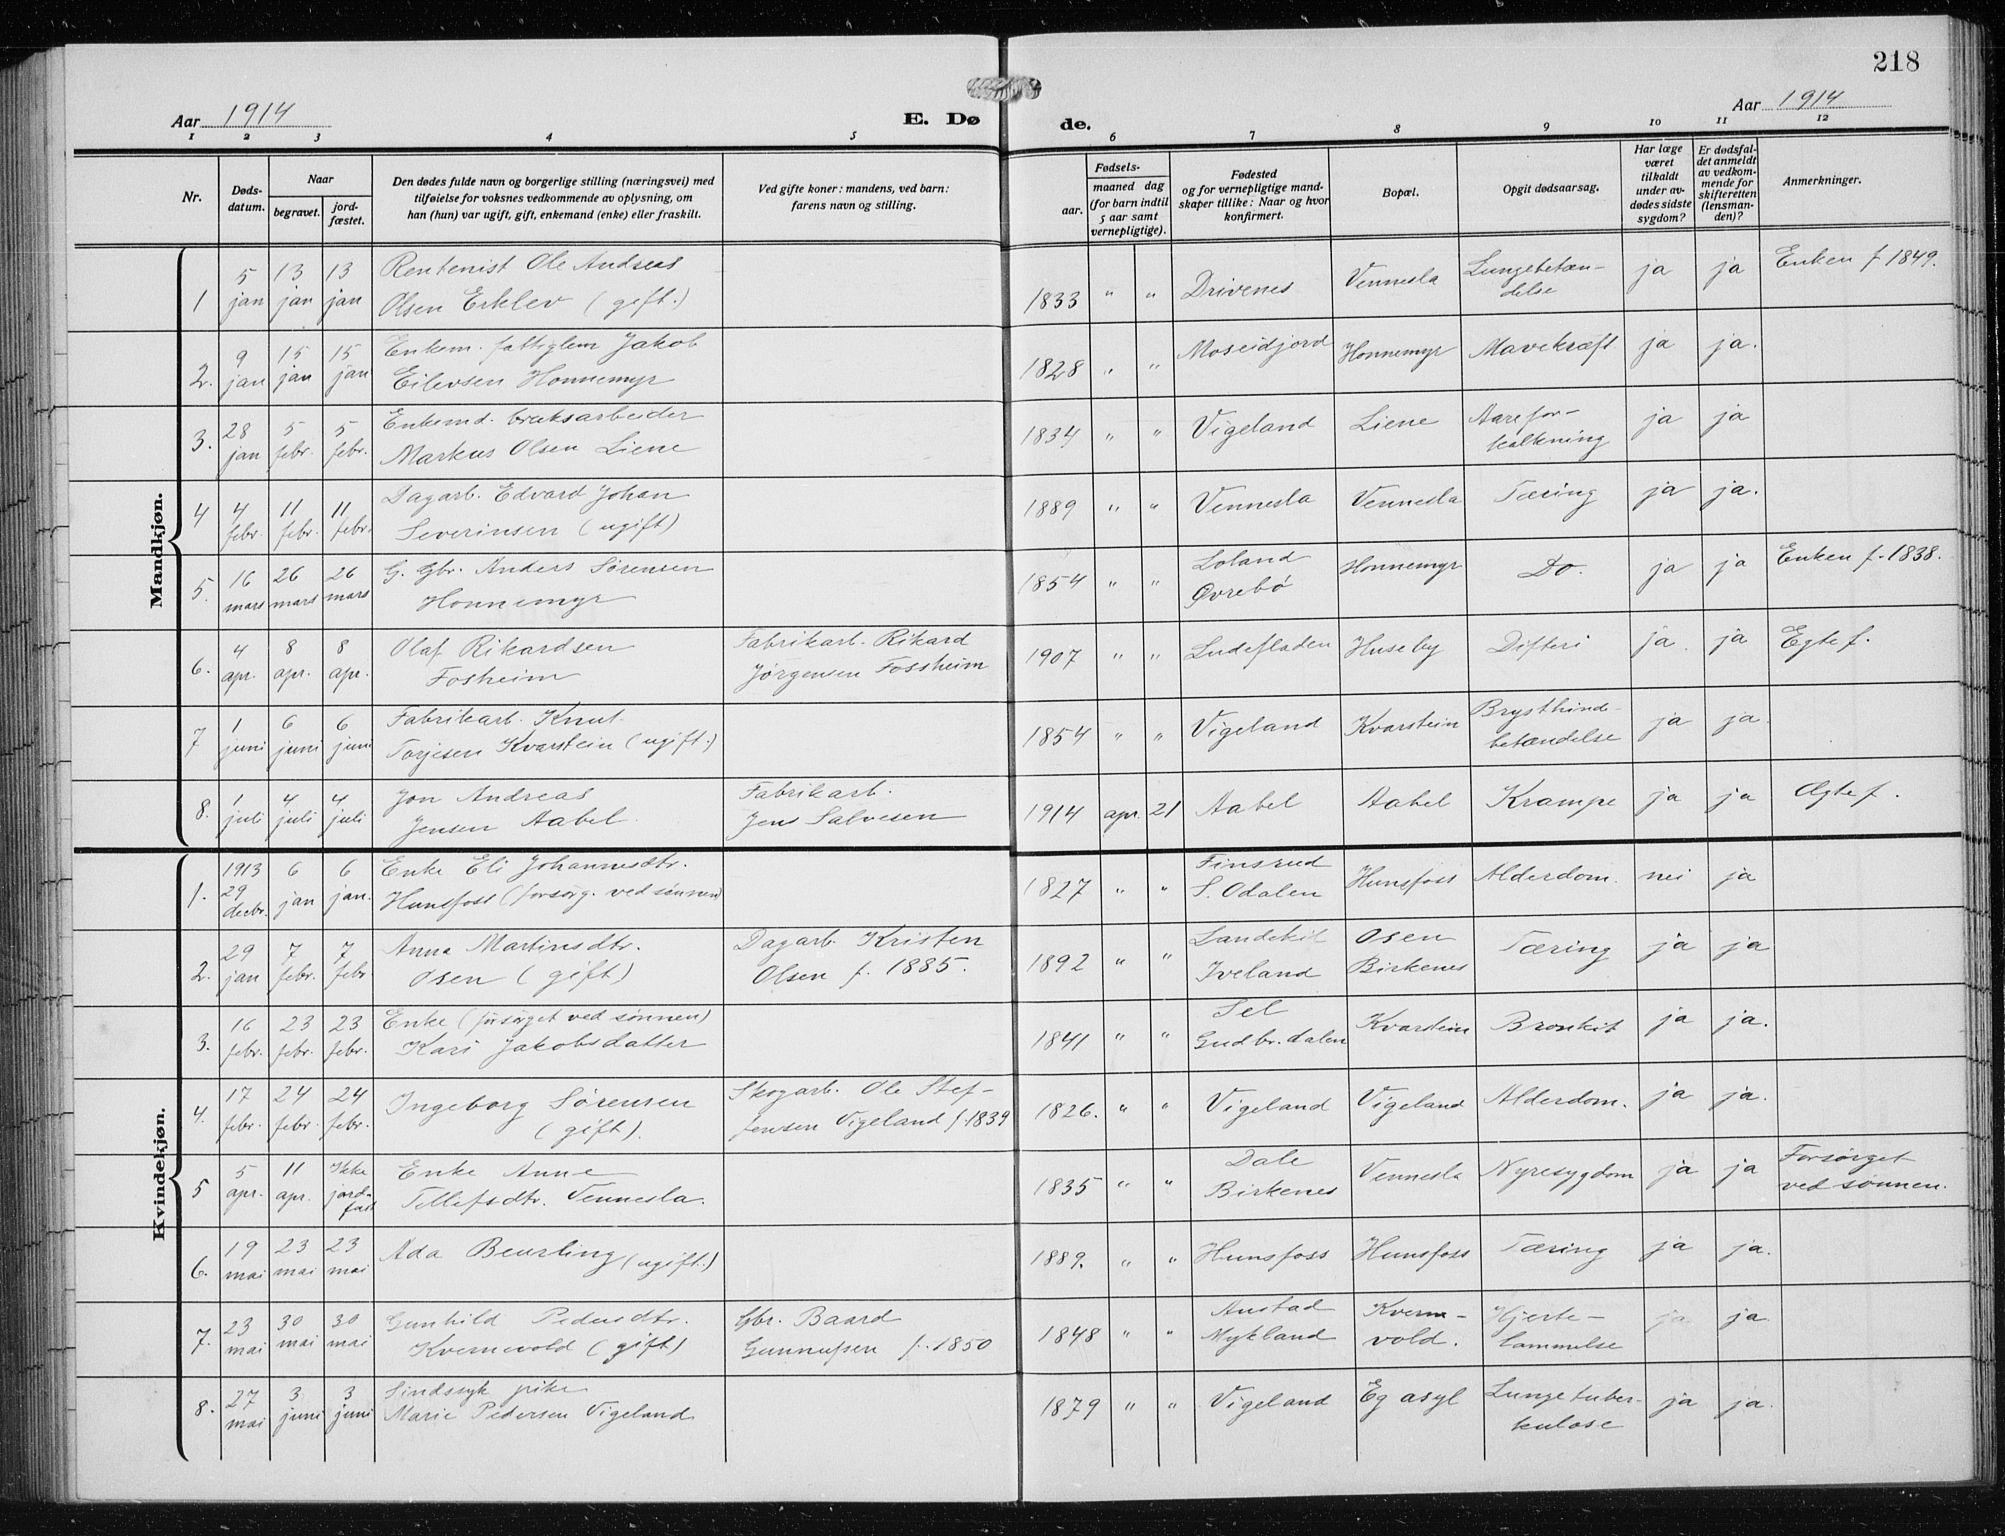 218
Aar 1914
E. Dø
de.
Aar 1914
1 2 3 4 5 6 7 8 9 10 11 12
Nr.
Døds-
datum.
Naar
begravet.
jord-
fæstet.
Den dødes fulde navn og borgerlige stilling (næringsvei) med
tilføielse for voksnes vedkommende av oplysning, om
han (hun) var ugift, gift, enkemand (enke) eller fraskilt.
Ved gifte koner: mandens, ved barn:
farens navn og stilling.
Fødsels-
aar.
maaned dag
(for barn indtil
5 aar samt
vernepligtige).
Fødested
og for vernepligtige mand-
skaper tillike: Naar og hvor
konfirmert.
Bopæl.
Opgit dødsaarsag.
Har læge
været
tilkaldt
under av-
dødes sidste
sygdom?
Er dødsfal-
det anmeldt
av vedkom-
mende for
skifteretten
(lensman-
den)?
Anmerkninger.
Mandkjøn.
1 5 jan 13 jan 13 jan Rentenist Ole Andreas
Olsen Erklev (gift.) 1833 " " Drivenes Vennesla Lungebetæn-
delse ja ja Enken f. 1849.
2. 9 jan 15 jan 15 jan Enkem. fattiglem Jakob
Eilevsen Honnemyr 1828 " " Moseidjord Honnemyr Mavekræft ja ja.
3. 28 jan 5 febr. 5 febr. Enkemd. bruksarbeider
Markus Olsen Liene 1834 " " Vigeland Liene Aarefor-
kalkning ja ja
4 4 febr. 11 febr. 11 febr. Dagarb. Edvard Johan
Severinsen (ugift) 1889 " " Vennesla Vennesla Tæring ja ja.
5. 16 mars 26 mars 26 mars G. Gbr. Anders Sørensen
Honnemyr 1854 " " Loland
Øvrebø Honnemyr Do. ja ja Enken f. 1838.
6. 4 apr. 8 apr. 8 apr. Olaf Rikardsen
Fosheim Fabrikarb. Rikard
Jørgensen Fossheim 1907 " " Ludefladen Huseby Difteri ja. ja Egte f.
7 1 juni 6 juni 6 juni Fabrikarb. Knut
Torjesen Kvarstein (ugift.) 1854 " " Vigeland Kvarstein Brysthinde-
betændelse ja ja.
8. 1 juli 4 juli 4 juli Jon Andreas
Jensen Aabel. Fabrikarb.
Jens Salvesen 1914 apr. 21 Aabel Aabel Krampe ja ja Ægte f.
Kvindekjøn.
1. 1913 29 decbr. 6 jan 6 jan. Enke Eli Johannesdtr.
Hunsfoss (forsørg. ved sønnen) 1827 " " Finsrud
S. Odalen Hunsfoss Alderdom. nei ja
2. 29 jan 7 febr. 7 febr Anna Martinsdtr.
Osen (gift) Dagarb. Kristen
Olsen f. 1885. 1892 " " Landekit
Iveland Osen
Birkenes Tæring ja ja
3. 16 febr. 23 febr. 23 febr. Enke (forsørget ved sønnen)
Kari Jakobsdatter 1841 " " Sel
Gudbr.dalen Kvarstein Bronkit ja ja.
4. 17 febr. 24 febr. 24 febr. Ingeborg Sørensen
(gift). Skogarb. Ole Stef-
fensen Vigeland f. 1839 1826. " " Vigeland Vigeland Alderdom. ja ja.
5 5 apr. 11 apr. Ikke jord-fæst Enke Anne
Tellefsdtr. Vennesla. 1835 " " Dale
Birkenes Vennesla Nyresygdom ja ja Forsørget
ved sønnen.
6. 19 mai 23 mai 23 mai Ada Beurling (ugift.) 1889. " " Hunsfoss Hunsfoss Tæring ja ja.
7. 23 mai 30 mai 30 mai Gunhild Pedersdtr.
Kvernevold (gift) Gbr. Baard
Gunnufsen f. 1850 1848 " " Austad
Mykland Kverne-
vold. Hjerte-
lammelse ja ja.
8. 27 mai 3 juni 3 juni Sindssyk pike
Marie Pedersen Vigeland 1879 " " Vigeland Eg asyl Lungetuber-
kulose ja ja.